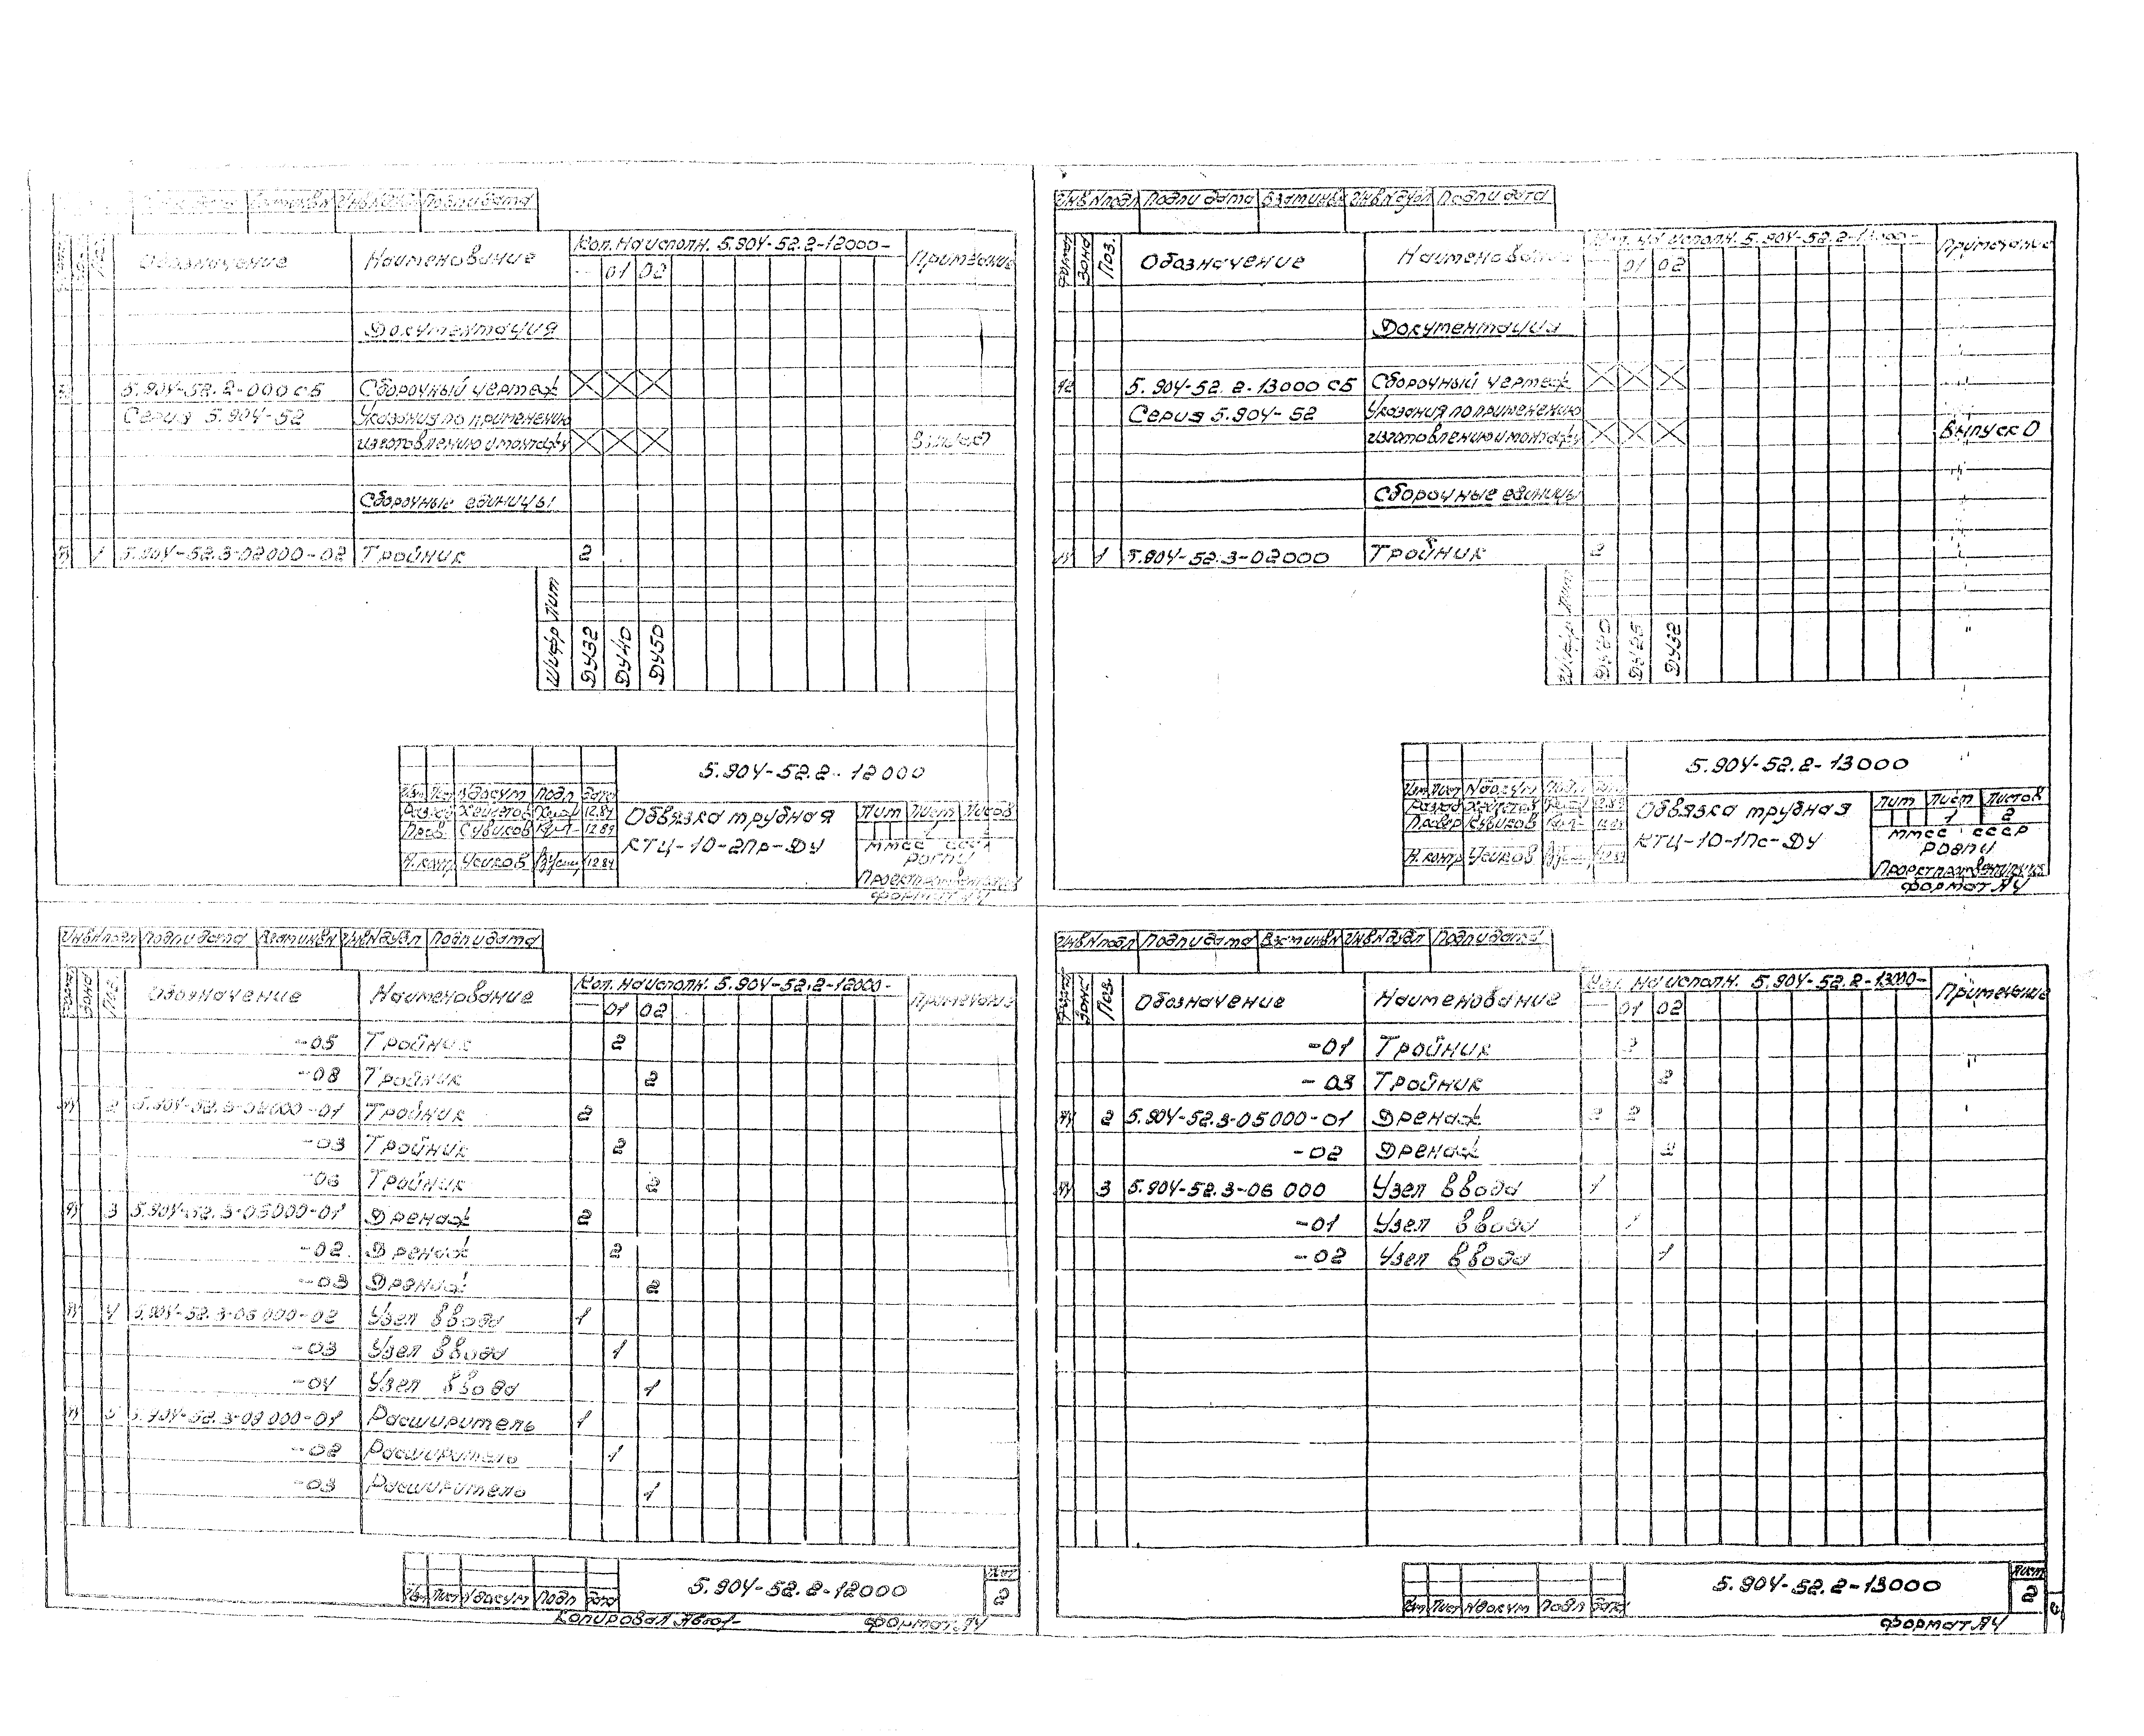 Подп и дата Взам инв Инв N дубл Подп и дата
Обозначение Наименование Кол. на исполн. 5.904-52.2-12000- Примечание
— 01 02
Документация
5.904-52.2-000 СБ Сборочный чертеж
Серия 5.904-52 Указания по применению
изготовлению и монтажу
Сборочные единицы
1 5.904-52.3-02000-02 Тройник 2
Шифр Лит
ДУ32 ДУ40 ДУ50
5.904-52.2-12000
Изм Лист N докум Подп Дата
12.89
Пров. 12.89
Н.контр Усиков 12.89
Обвязка трубная
КТЦ-10-2Пр-ДУ
Лит Лист Листов
ММСС СССР
Формат А4
Инв N подл Подп и дата Взам инв Инв N дубл Подп и дата
Формат Зона Поз. Обозначение Наименование Кол. на исполн. 5.904-52.2-13000- Примечание
— 01 02
Документация
А2 5.904-52.2-13000 СБ Сборочный чертеж
Серия 5.904-52 Указания по применению
изготовлению и монтажу Выпуск 0
Сборочные единицы
А4 1 5.904-52.3-02000 Тройник 2
Шифр Лит
ДУ20 ДУ25 ДУ32
5.904-52.2-13000
Изм Лист N докум Подп
Н.контр Усиков
Обвязка трубная
КТЦ-10-1Пс-ДУ
Лит Лист Листов
1 2
ММСС СССР
Формат А4
Инв N подл Подп и дата Взам инв Инв N дубл Подп и дата
Формат Зона Поз. Обозначение Наименование Кол. на исполн. 5.904-52.2-12000- Примечание
— 01 02
-05 Тройник 2
-08 Тройник 2
А4 2 Тройник 2
-03 Тройник 2
-06 Тройник 2
А4 3 5.904-52.3-05000-01 Дренаж 2
-02 Дренаж 2
-03 Дренаж 2
А4 4 5.904-52.3-06000-02 Узел ввода 1
-03 Узел ввода 1
-04 Узел ввода 1
А4 5 5.904-52.3-09000-01 Расширитель 1
-02 Расширитель 1
-03 Расширитель 1
Изм Лист N докум Подп Дата
5.904-52.2-12000
Лист
2
Копировал Формат А4
Инв N подл Подп и дата Взам инв Инв N дубл Подп и дата
Формат Зона Поз. Обозначение Наименование Кол. на исполн. 5.904-52.2-13000- Примечание
— 01 02
-01 Тройник 2
-03 Тройник 2
А4 2 5.904-52.3-05000-01 Дренаж 2 2
-02 Дренаж 2
А4 3 5.904-52.3-06000 Узел ввода 1
-01 Узел ввода 1
-02 Узел ввода 1
Изм Лист N докум Подп Дата
5.904-52.2-13000
Лист
2
Формат А4